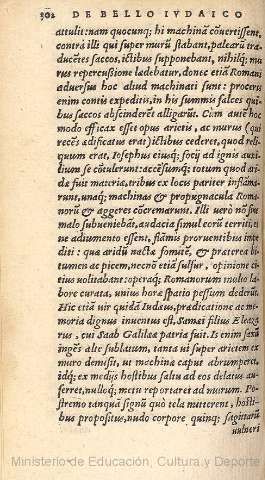 302 DE BELLO IVDAICO
attulit: nam quocunq; hi machinā cōuertissent,
contrà illi qui super murū stabant, palearū tra-
ducētes saccos, ictibus supponebant, nihilq; mu
rus repercussione lædebatur, donec etiā Romani
aduersus hoc aliud machinati sunt: proceris
enim contis expeditis, in his summis falces qui-
bus saccos abscinderēt alligarūt. Cùm autē hoc
modo efficax esset opus arietis, ac murus (qui
recēs ædificatus erat) ictibus cederet, quod reli-
quum erat, Iosephus eiusq; socij ad ignis auxi-
lium se cōtulerunt: accēsumq; totum quod ari-
dæ fuit materiæ, tribus ex locis pariter inflāma-
runt, unaq; machinas & propugnacula Roma-
norū & aggeres cōcremarunt. Illi uerò nō sine
malo subueniebāt, audacia simul eorū territi, et
ne adiumento essent, flāmis proruentibus impe
diti: quæ aridū nacta fomitē, & præterea bi-
tumen ac picem, necnō etiā sulfur, opinione ci
tius uolitabant: operaq; Romanorum multo la-
bore curata, unius horæ spatio pessum dederūt.
Hic etiā uir quidā Iudæus, prædicatione ac me-
moria dignus inuentus est, Samei filius Eleaza
rus, cui Saab Galilææ patria fuit. Is enim saxū
ingēs altè sublatum, tanta ui super arietem ex
muro demisit, ut machinæ caput abrumperet,
idq; ex medijs hostibus saltu ad eos delatus au-
ferret, nulloq; metu reportaret ad murum. Po-
stremo tanquā signū quò tela mitterent, hosti-
bus propositus, nudo corpore quinq; sagittarū
uulneri
Ministerio de Educación, Cultura y Deporte